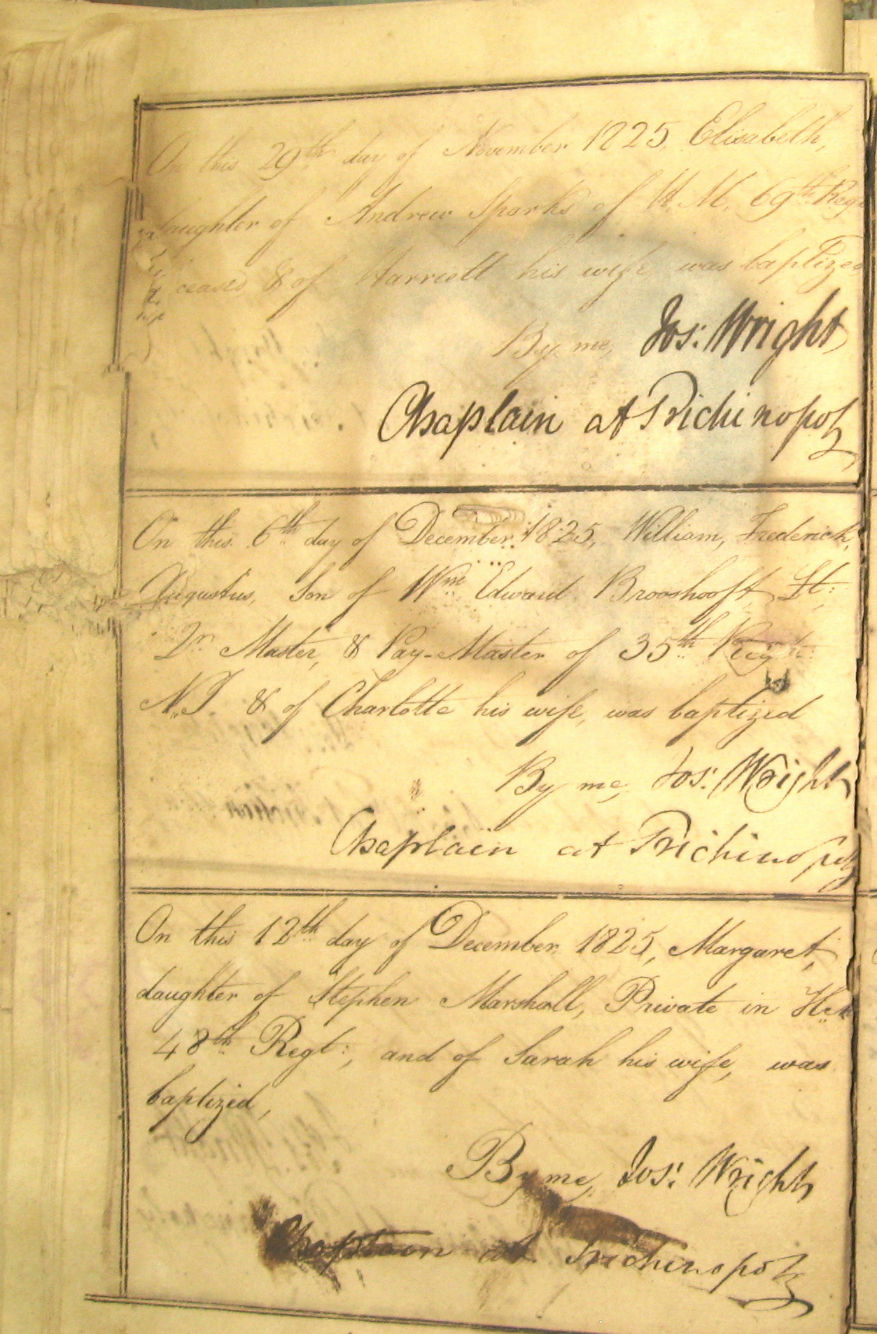 On this 29th day of November 1825 Elisabeth,
daughter of Andrew Sparks of H. M. 69th Regt
ceased & of Harriott his wife was baptized
By me, Jos: Wright,
Chaplain at Trichinopoly
On this 6th day of December 1825, William, Frederick,
Augustus, Son of Wm Edward Brooshooft Lt:
Qr Master, & Pay-Master of 35th Regt:
N.I & of Charlotte his wife, was baptized
By me, Jos: Wright,
Chaplain at Trichinopoly
On this 12th day of December 1825, Margaret,
daughter of Stephen Marshall, Private in H. M
48th Regt:, and of Sarah his wife, was
baptized,
By me, Jos: Wright
Chaplain at Trichinopoly